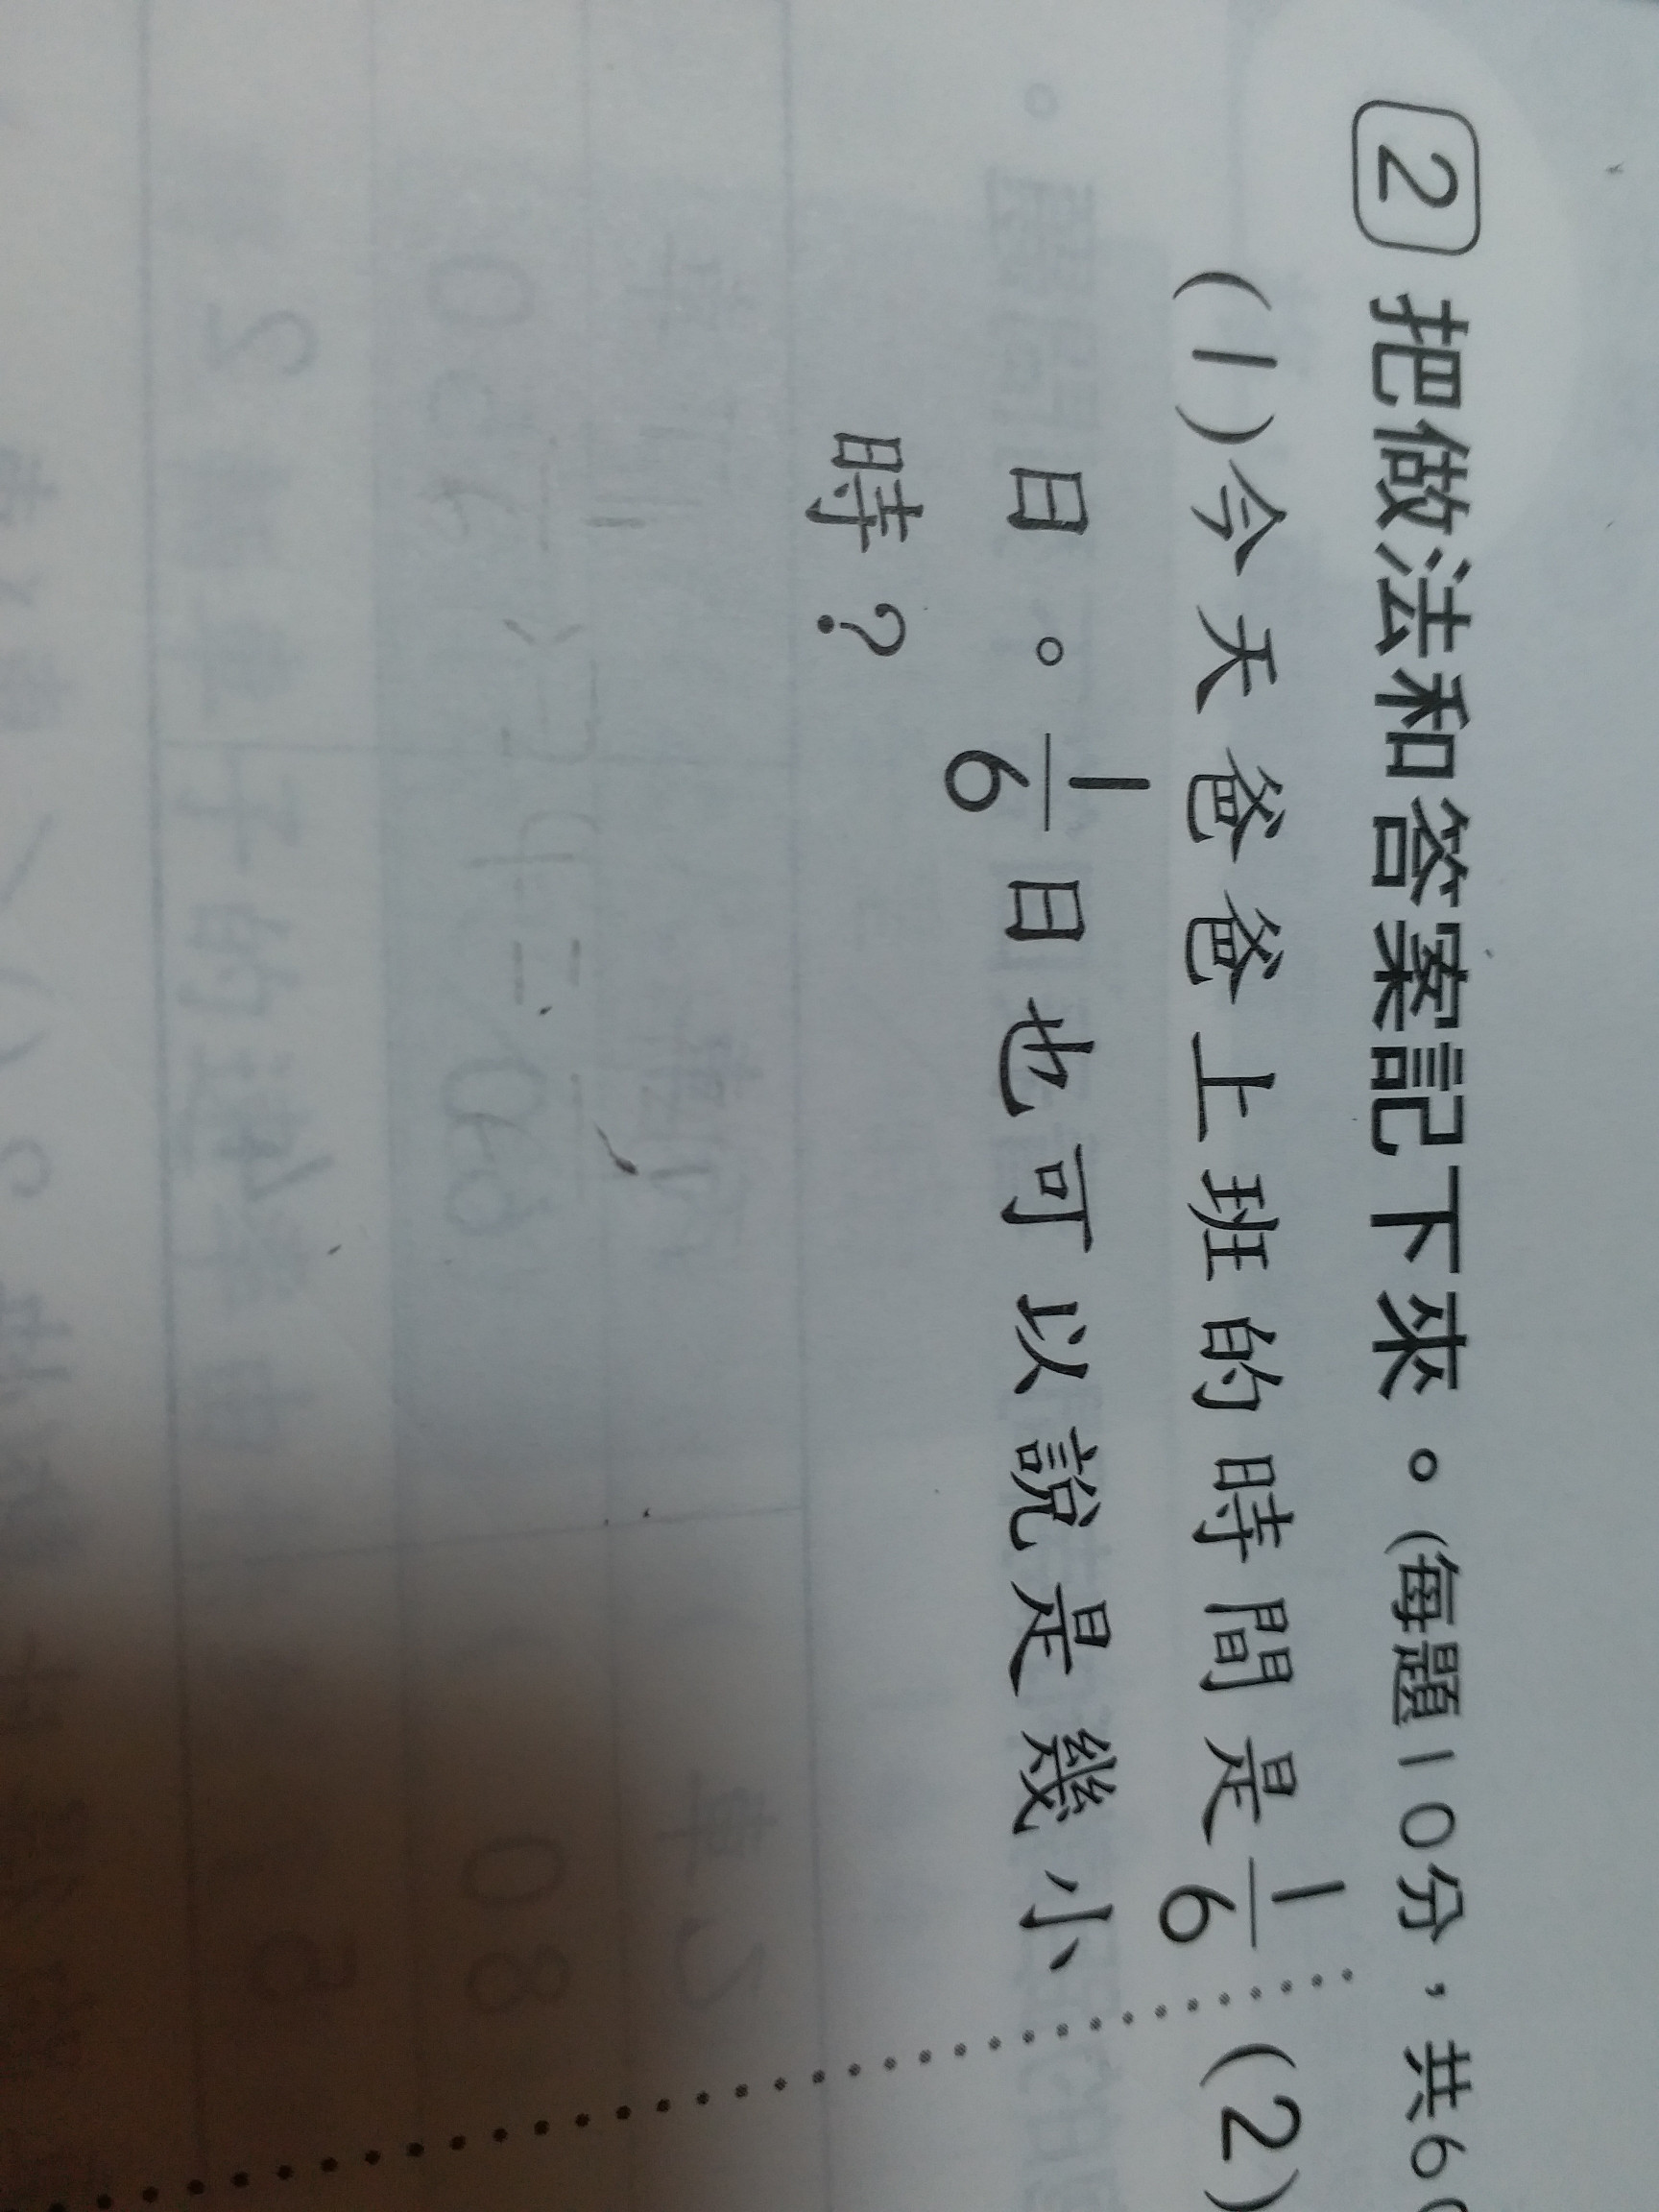 2 把做法和答案記下來。(每題10分,共6
(1)今天爸爸上班的時間是1/6
日。1/6日也可以說是幾小
時?
(2)